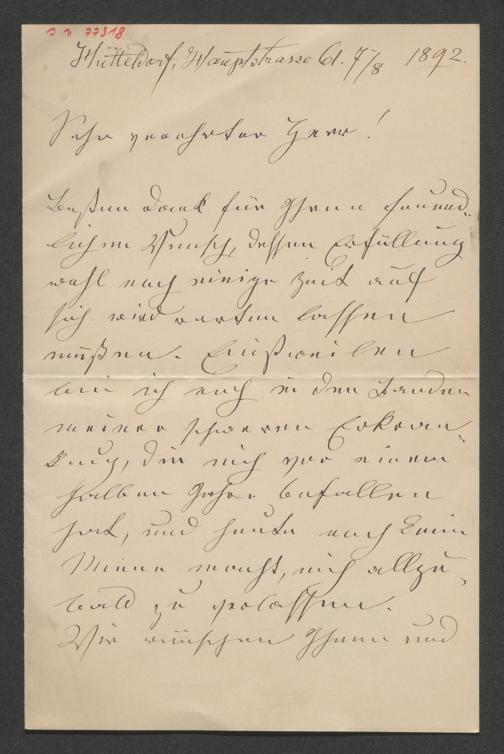 I N 77318
Hütteldorf, Hauptstrasse 61. 7/8 1892.
Sehr verehrter Herr!
Besten Dank für Ihren freund-
lichen Wunsch, dessen Erfüllung
wohl noch einige Zeit auf
sich wird warten lassen
müßen. Einstweilen
bin ich noch in den Banden
meiner schweren Erkran-
kung, die mich vor einem
halben Jahr befallen
hat, und heute noch keine
Miene macht, mich allzu-
bald zu verlassen.
Wir wünschen Ihnen und